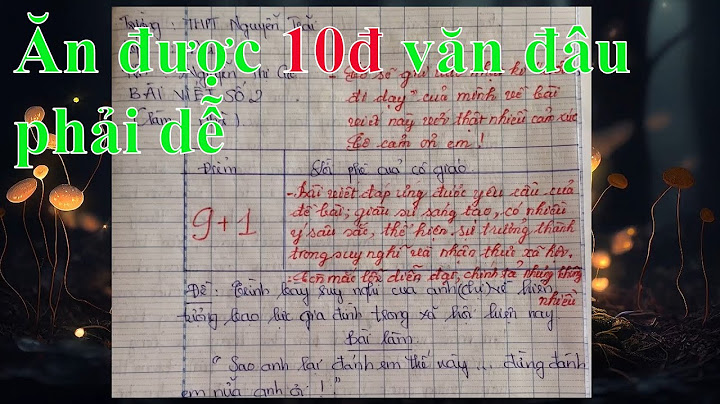 Ăn được 10đ văn đâu
phải dễ
Trường: THPT Nguyễn Trãi
BÀI VIẾT SỐ 2
đi dạy" của mình về bài
viết này với thật nhiều cảm xúc
Cô cảm ơn em!
Điểm
Lời phê của cô giáo
9+1
- Bài viết đáp ứng được yêu cầu của
đề bài; giàu sự sáng tạo, có nhiều
ý sâu sắc, thể hiện sự trưởng thành
trong suy nghĩ và nhận thức xã hội.
- Còn mắc lỗi diễn đạt, chính tả nhưng không
nhiều
Đề: Trình bày suy nghĩ của anh (chị) về hiện
tượng bạo lực gia đình trong xã hội hiện nay
Bài làm
"Sao anh lại đánh em thế này... đừng đánh
em nữa anh ơi!"